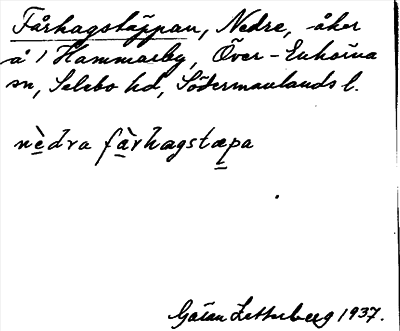 Fårhagstäppan, Nedre, åker
å 1 Hammarby, Över-Enhörna
sn, Selebo hd, Södermanlands l.
nèdra fàrhagstæpa
Göran Zetterberg 1937.